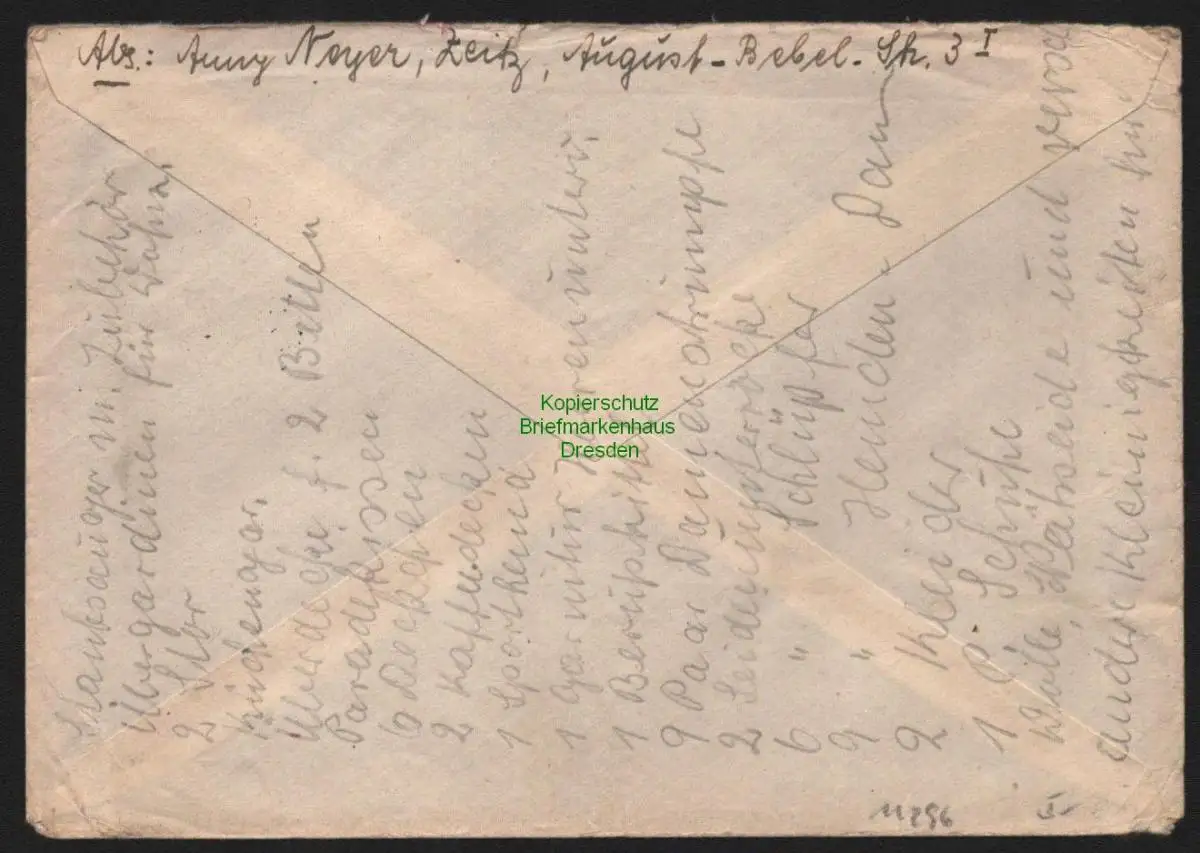 Abs.: Anny Noyer, Zeitz, August-Bebel-Str. 3 I
Staubsauger m. Zubehör
Übergardinen für Wohn.
2 Stor
Küchengar.
Überdecke f. 2 Betten
Paradekissen
6 Deckchen
2 Kaffeedecken
1 Sporthemd
1 Garnitur Herrenunterw.
1 Berufskittel
9 Paar Damenstrümpfe
2 Seidenunterröcke
6 " Schlüpfer
9 " Hemden Dam
2 Kleider
1 P. Schuhe
Wolle, Nähseide und versch
andere Kleinigkeiten
Kopierschutz
Briefmarkenhaus
Dresden
11296